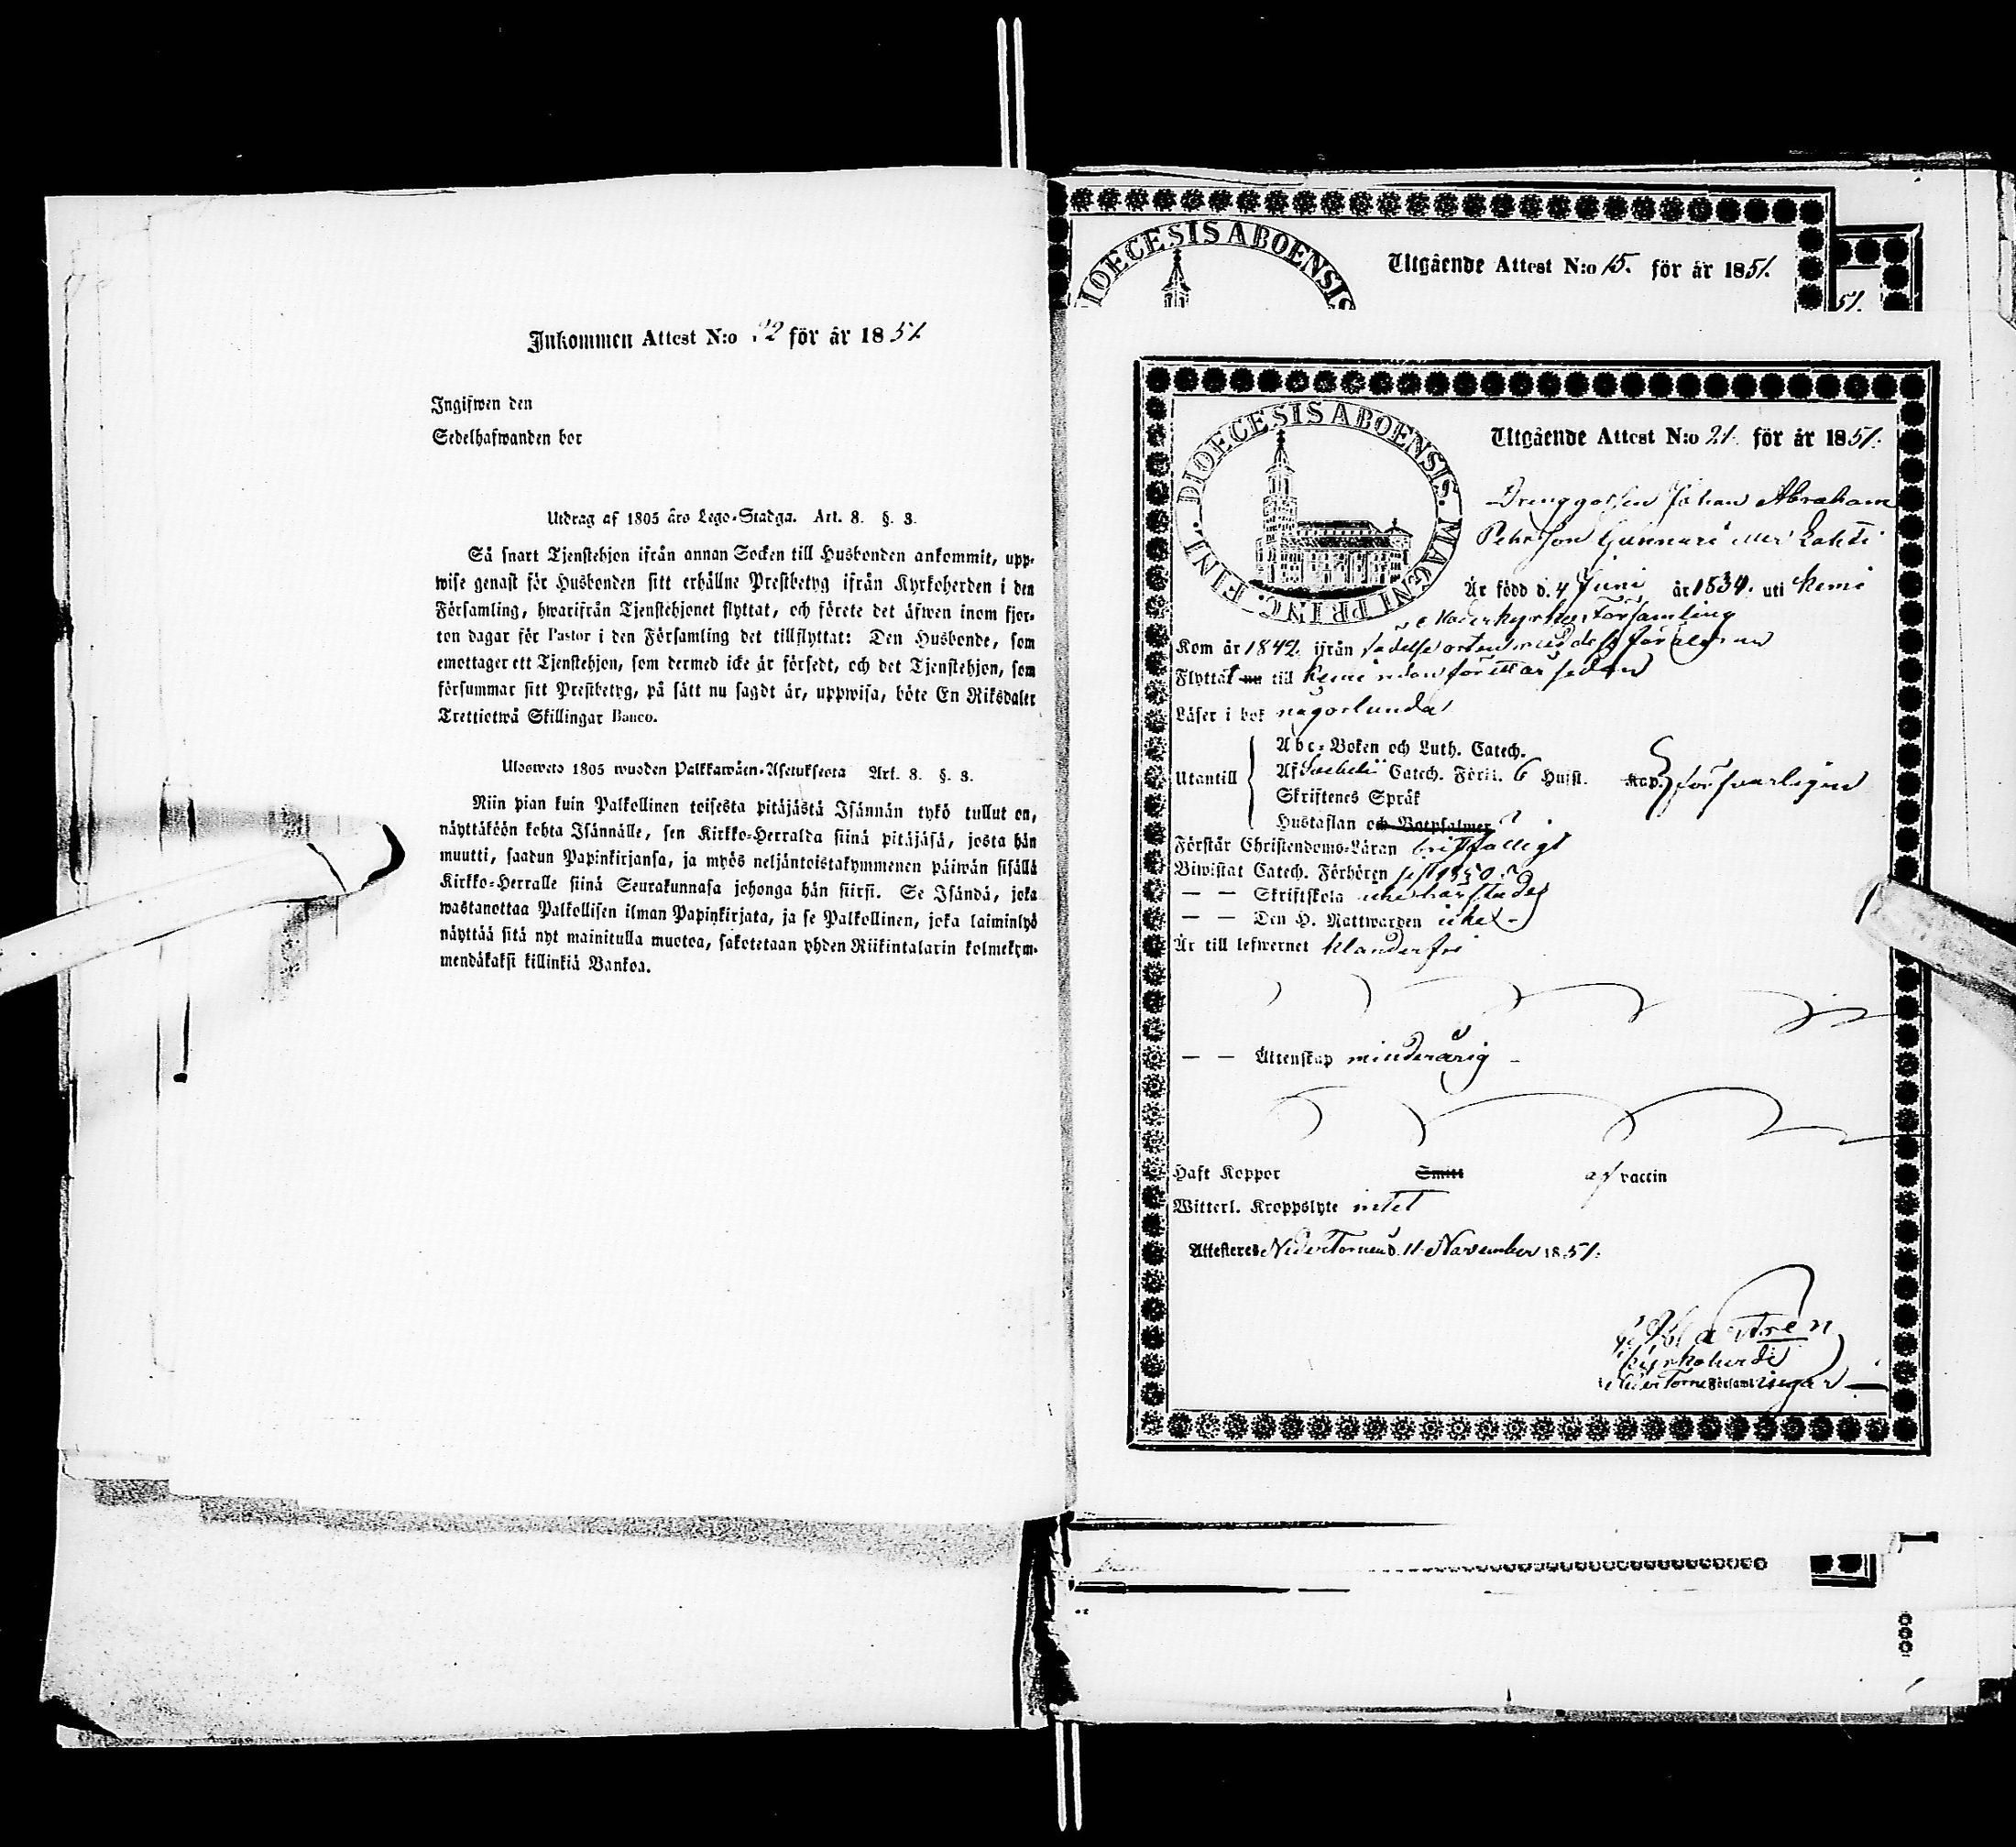 Inkommen Attest N:o 22 för år 1851
Ingifwen den
Sedelhafwanden bor
Utdrag af 1805 års Lego-Stadga. Art. 8. §. 3.
Så snart Tjenstehjon ifrån annan Socken till Husbonden ankommit, upp-
wise genast för Husbonden sitt erhållne Prestbetyg ifrån Kyrkoherden i den
Församling, hwarifrån Tjenstehjonet flyttat, och förete det äfwen inom fjor-
ton dagar för Pastor i den Församling det tillflyttat: Den Husbonde, som
emottager ett Tjenstehjon, som dermed icke är försedt, och det Tjenstehjon, som
försummar sitt Prestbetyg, på sätt nu sagdt är, uppwisa, böte En Riksdaler
Trettiotwå Skillingar Banco.
Ulosweto 1805 wuoden Palkkawäen-Asetuksesta Art. 8. §. 3.
Niin pian kuin Palkollinen toisesta pitäjästä Isännän tykö tullut on,
näyttäköön kohta Isännälle, sen Kirkko-Herralda siinä pitäjäsä, josta hän
muutti, saadun Papinkirjansa, ja myös neljäntoistakymmenen päiwän sisällä
Kirkko-Herralle siinä Seurakunnasa johonga hän siirsi. Se Isändä, joka
wastanottaa Palkollisen ilman Papinkirjata, ja se Palkollinen, joka laiminlyö
näyttää sitä nyt mainitulla muotoa, sakotetaan yhden Riikintalarin kolmekym-
mendäkaksi killinkiä Bankoa.
DIOECESIS ABOENSIS
Utgående Attest N:o 15. för år 1851.
51.
DIOECESIS ABOENSIS. MAGNI PRINC. FINL.
Utgående Attest N:o 21. för år 1851.
Drenggossen Johan Abraham
Pehrsson Gunnari Lahti
Är född d. 4 Juni år 1834. uti Kemi
Moderkyrko Församling
Kom år 1842 ifrån födelseorten med dess föräldrar
Flyttat nu till Kemi för ett år sedan
Läser i bok någorlunda
Utantill
Abc-Boken och Luth. Catech.
Af Catech. Förkl. 6 Hufst. Kap. försvarligen
Skriftenes Språk
Hustaflan och Botpsalmer
Förstår Christendoms-Läran bristfälligt
Biwistat Catech. Förhören sist 1850
— — Skriftskola icke härstädes
— — Den H. Nattwarden icke
Är till lefwernet klanderfri
— — Äktenskap minderårig
Haft Koppor Smitt af vaccin
Witterl. Kroppslyte intet
Attesteras Neder Torneå d. 11 November 1851.
Castrén
Kyrkoherde
i Neder Torne Församlingar